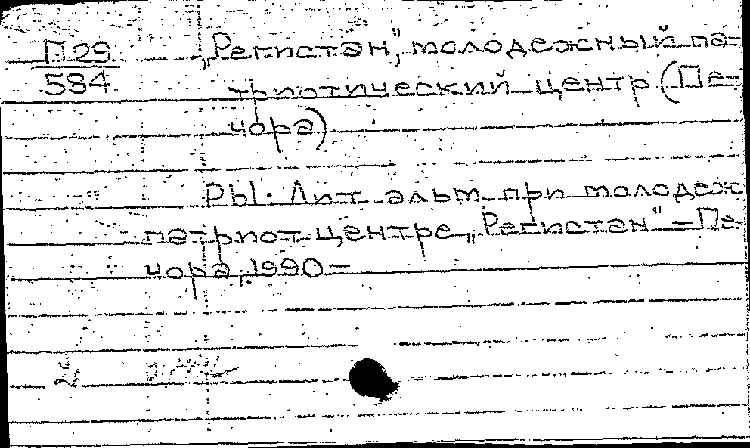 П 29
584
„Регистан", молодежный па-
триотический центр (Пе-
чора)
РЫ: Лит. альм. при молодеж
патриот. центре „Регистан" – Пе
чора, 1990 –